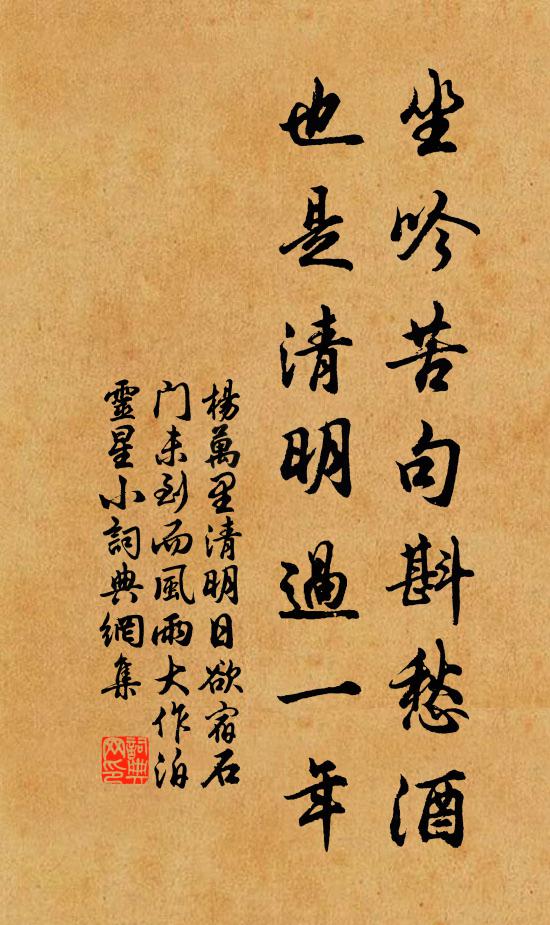 坐吟苦句斟愁酒
也是清明過一年
楊萬里清明日欲宿石
门未到而風雨大作泊
靈星小詞典網集
詞典
网印